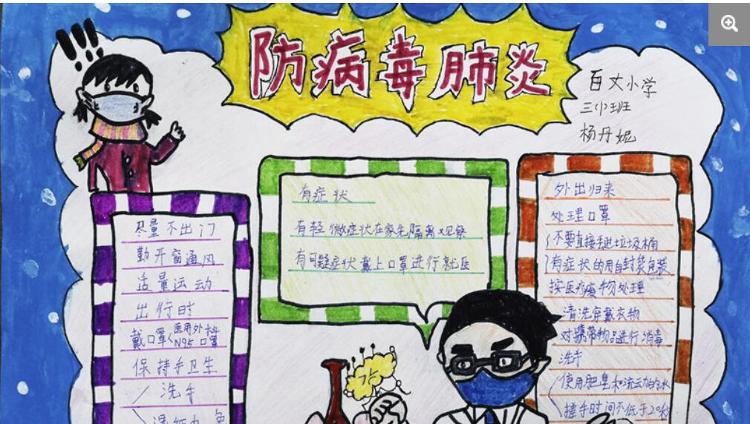 防病毒肺炎
百丈小学
三(1)班
杨丹妮
尽量不出门
勤开窗通风
适量运动
出行时
戴口罩(医用外科
N95口罩
保持手卫生
洗手
有症状
有轻微症状在家先隔离观察
有可疑症状戴上口罩进行就医
外出归来
处理口罩
不要直接丢进垃圾桶
有症状的用自封袋包装
按医疗废物处理
清洗穿戴衣物
对携带物品进行消毒
洗手
使用肥皂和流动的水
搓手时间不低于20秒